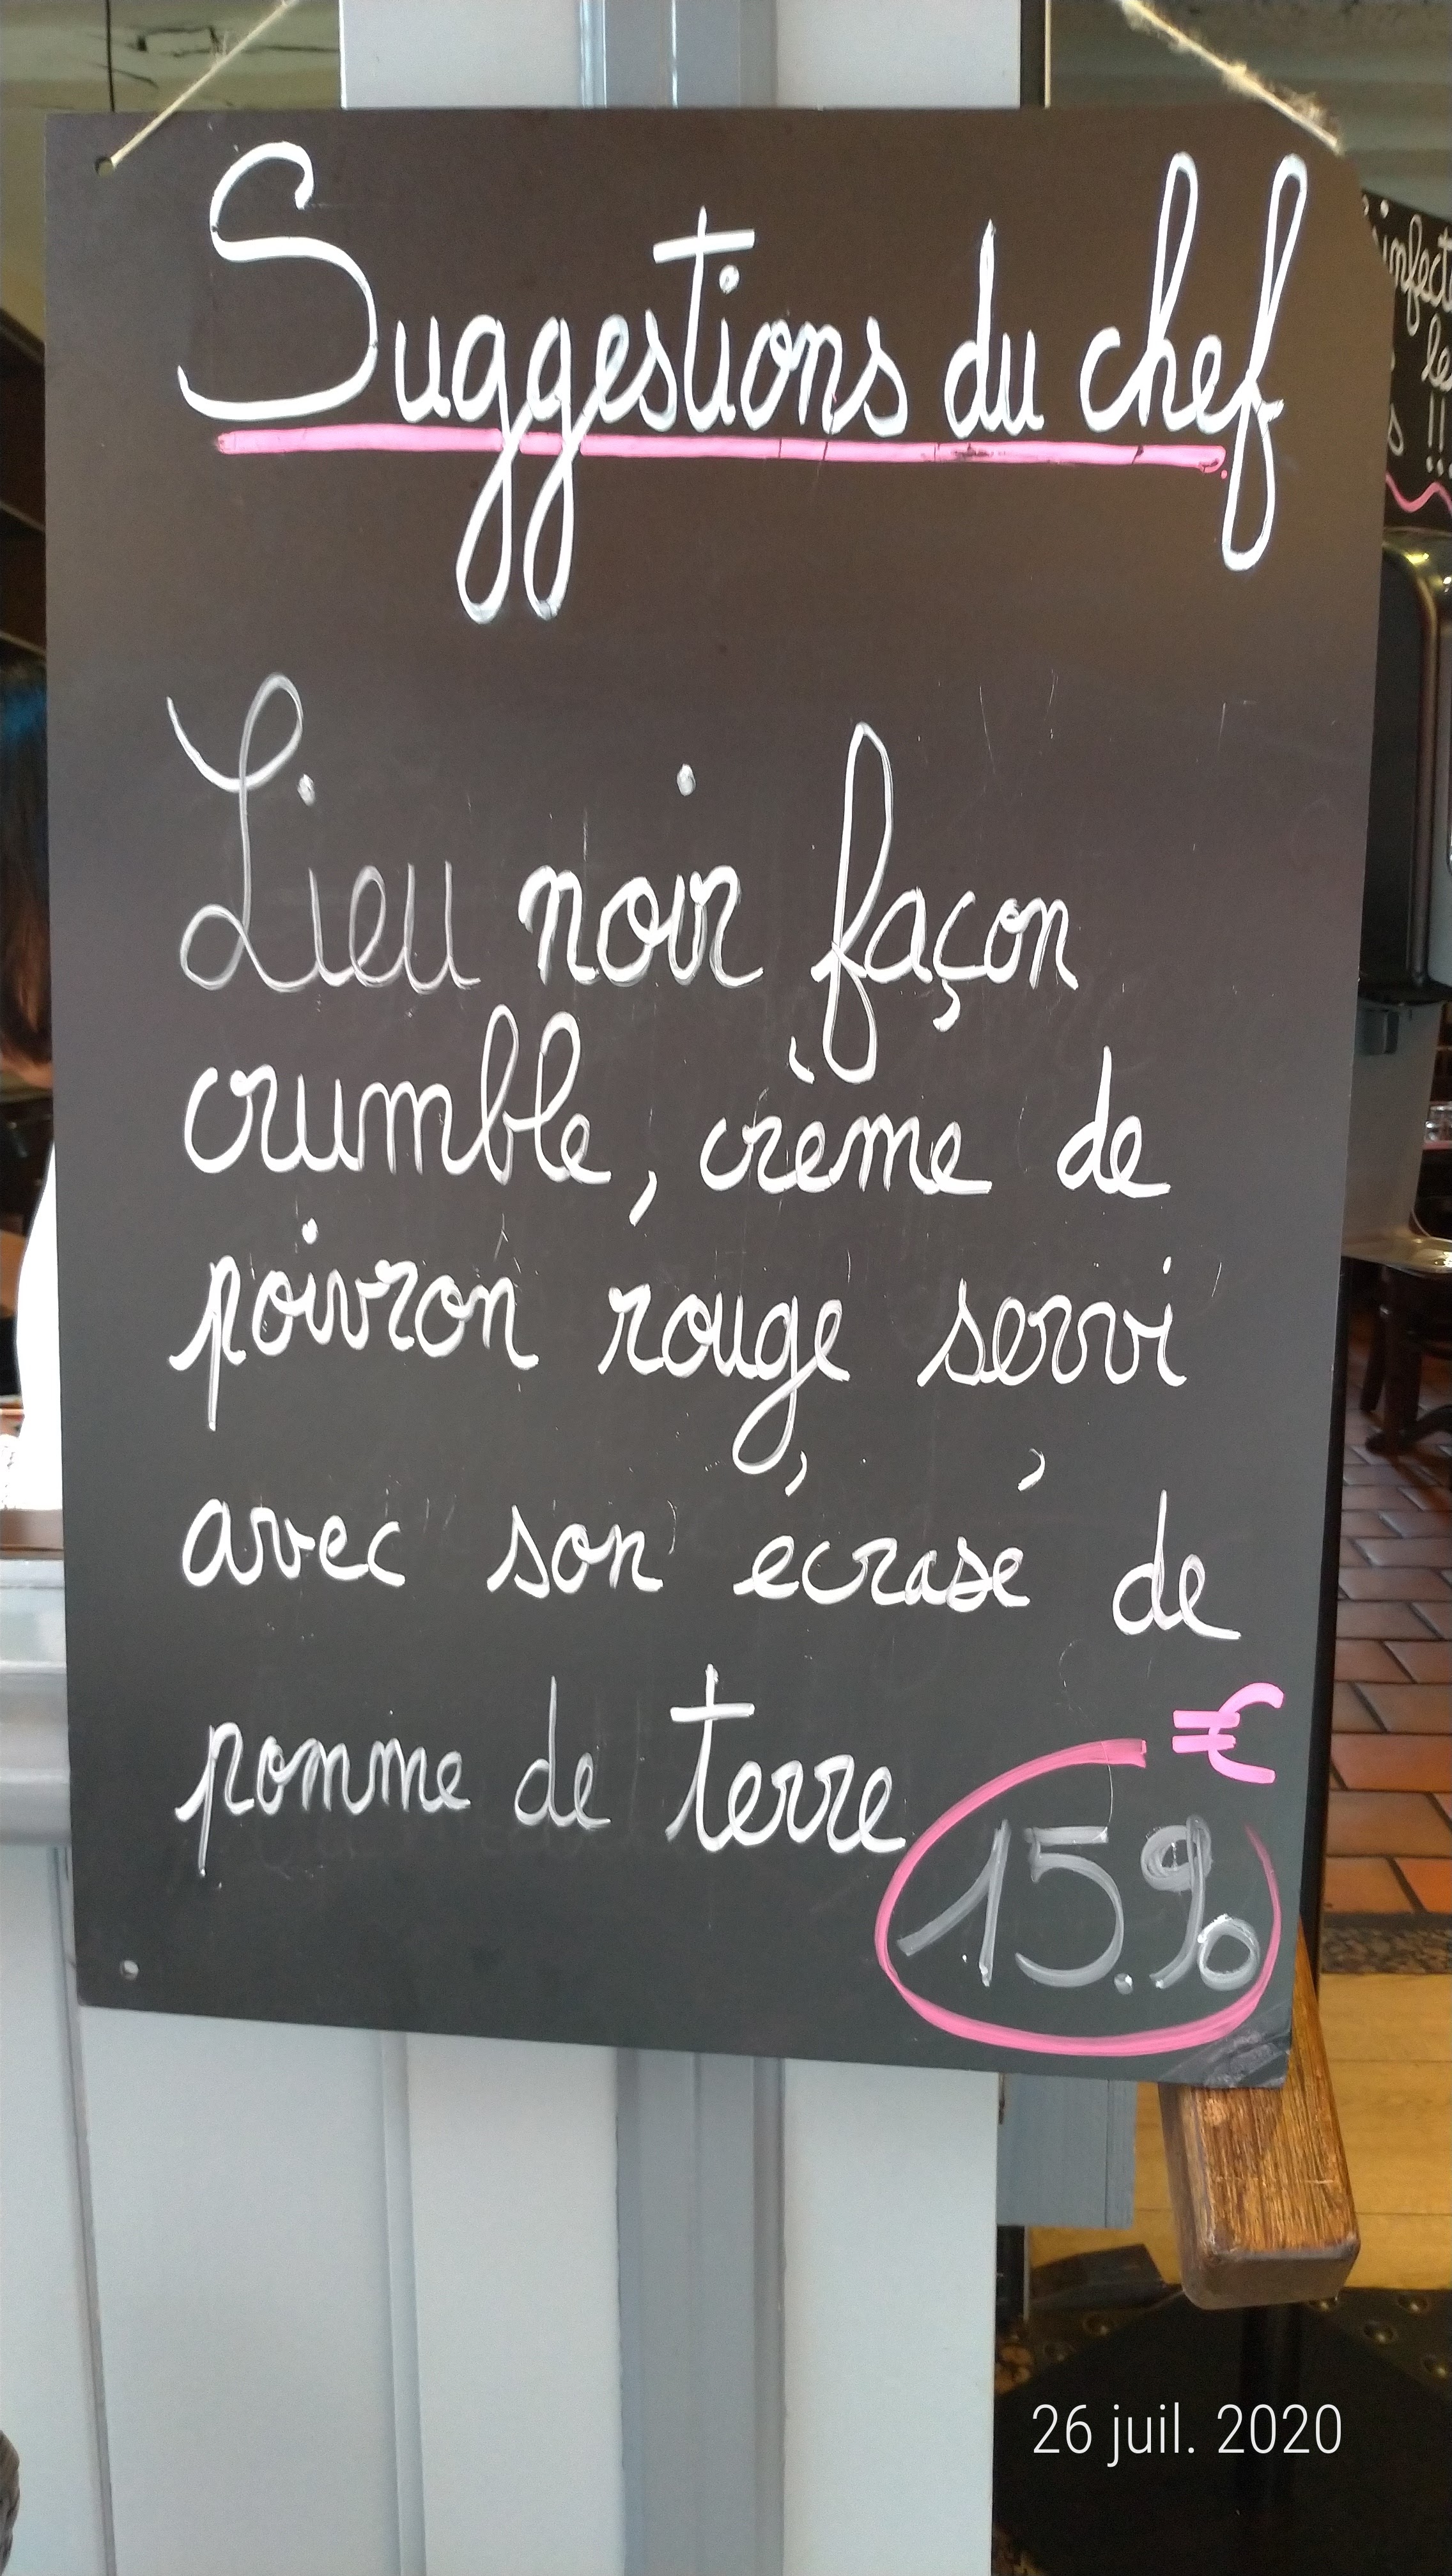 Suggestions du chef
Lieu noir façon
crumble, crème de
poivron rouge servi
avec son écrasé de
pomme de terre
€
15.90
26 juil. 2020